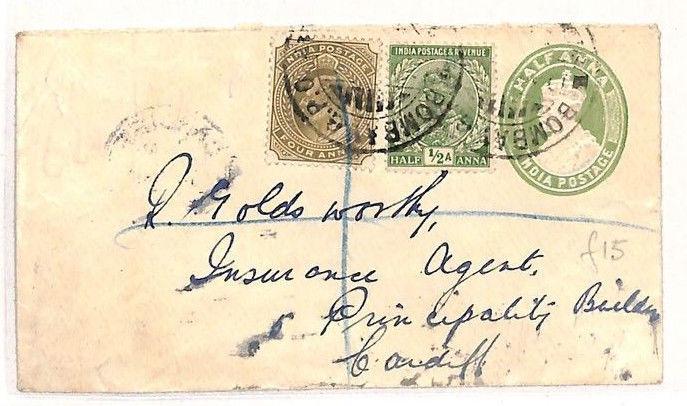 INDIA POSTAGE
FOUR ANNAS
INDIA POSTAGE & REVENUE
HALF 1/2A ANNA
HALF ANNA
INDIA POSTAGE
R.P.O.
BOMBAY
BOMBAY
R. Goldsworthy,
Insurance Agent.
Principality Builds
Cardiff
£15